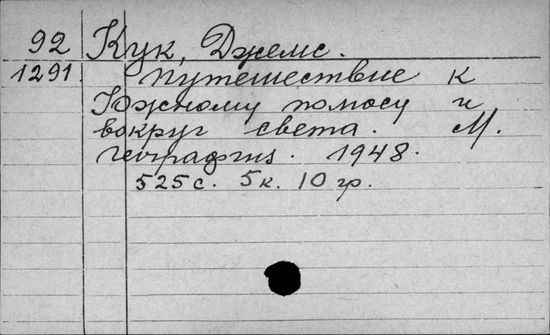 92 Кук, Джемс.
1291. Путешествие к
Южному полюсу и
вокруг света. М.
географгиз. 1948.
525 с. 5 к. 10 гр.